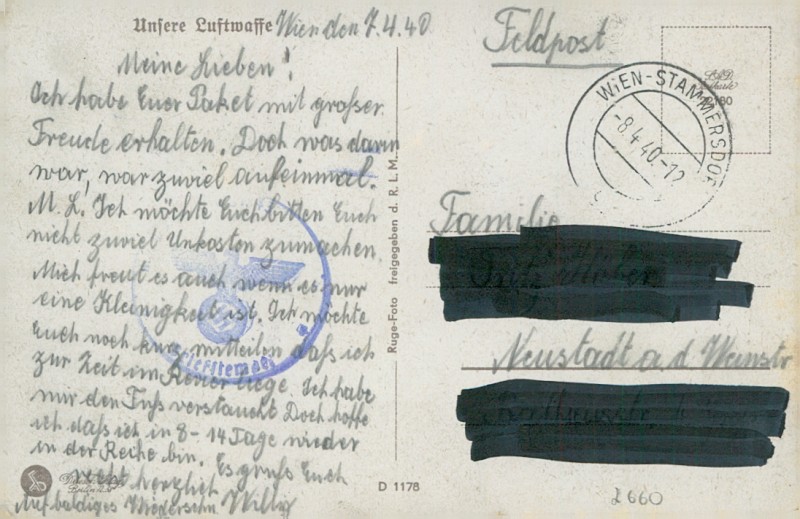 Unsere Luftwaffe Wien den 7.4.40
Meine Lieben!
Ich habe Euer Paket mit grosser
Freude erhalten. Doch was darin
war, war zuviel aufeinmal.
M. L. Ich möchte Euch bitten Euch
nicht zuviel Unkosten zumachen.
Mich freut es auch wenn es nur
eine Kleinigkeit ist. Ich möchte
Euch noch kurz mitteilen dass ich
zur Zeit im Revier liege. Ich habe
mir den Fuss verstaucht Doch hoffe
ich dass ich in 8-14 Tage wieder
in der Reihe bin. Es grüss Euch
recht herzlich
Auf baldiges Wiedersehn Willy
Ruge-Foto freigegeben d. R. L. M.
D 1178
Feldpost
WIEN-STAMMERSDORF
-8.4.40-12
Familie
Neustadt a d Weinstr
2660